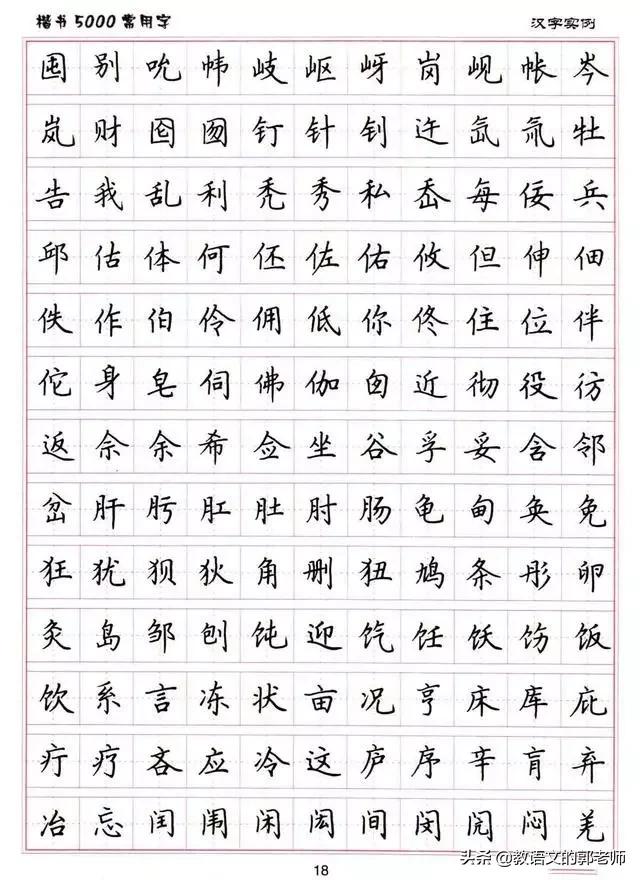 楷书5000常用字 汉字实例
囤 别 吮 帏 岐 岖 岈 岗 岘 帐 岑
岚 财 囵 囫 钉 针 钊 迕 氙 氚 牡
告 我 乱 利 秃 秀 私 岙 每 佞 兵
邱 估 体 何 伾 佐 佑 攸 但 伸 佃
佚 作 伯 伶 佣 低 你 佟 住 位 伴
佗 身 皂 伺 佛 伽 囱 近 彻 役 彷
返 佘 余 希 佥 坐 谷 孚 妥 含 邻
岔 肝 肟 肛 肚 肘 肠 龟 甸 奂 免
狂 犹 狈 狄 角 删 狃 鸠 条 彤 卵
灸 岛 邹 刨 饨 迎 饩 饪 饫 饬 饭
饮 系 言 冻 状 亩 况 亨 床 库 庇
疔 疗 吝 应 冷 这 庐 序 辛 肓 弃
冶 忘 闰 闱 闲 闳 间 闵 闶 闷 羌
18
头条 @教语文的郭老师